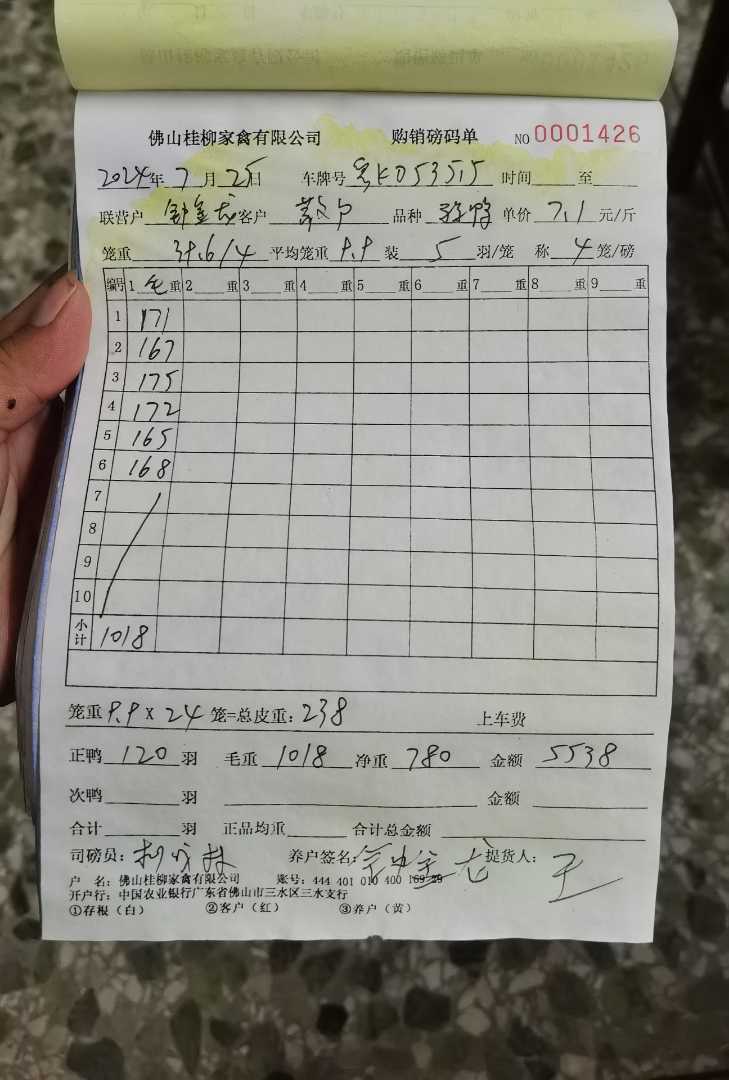 佛山桂柳家禽有限公司 购销磅码单 NO 0001426
2024年 7月 25日 车牌号 K05355 时间 至
联营户 钟金龙 客户 散户 品种 单价 7.1 元/斤
笼重 39.6/4 平均笼重 9.9 装 5 羽/笼 称 4 笼/磅
编号 1 毛 重 2 重 3 重 4 重 5 重 6 重 7 重 8 重 9 重
1 171
2 167
3 175
4 172
5 165
6 168
7
8
9
10
小计 1018
笼重 9.9 x 24 笼=总皮重:238 上车费
正鸭 120 羽 毛重 1018 净重 780 金额 5538
次鸭 羽 金额
合计 羽 正品均重 合计总金额
司磅员: 养户签名: 钟金龙 提货人: 王
户 名: 佛山桂柳家禽有限公司 账号: 444 401 010 400 169 29
开户行: 中国农业银行广东省佛山市三水区三水支行
①存根(白) ②客户(红) ③养户(黄)